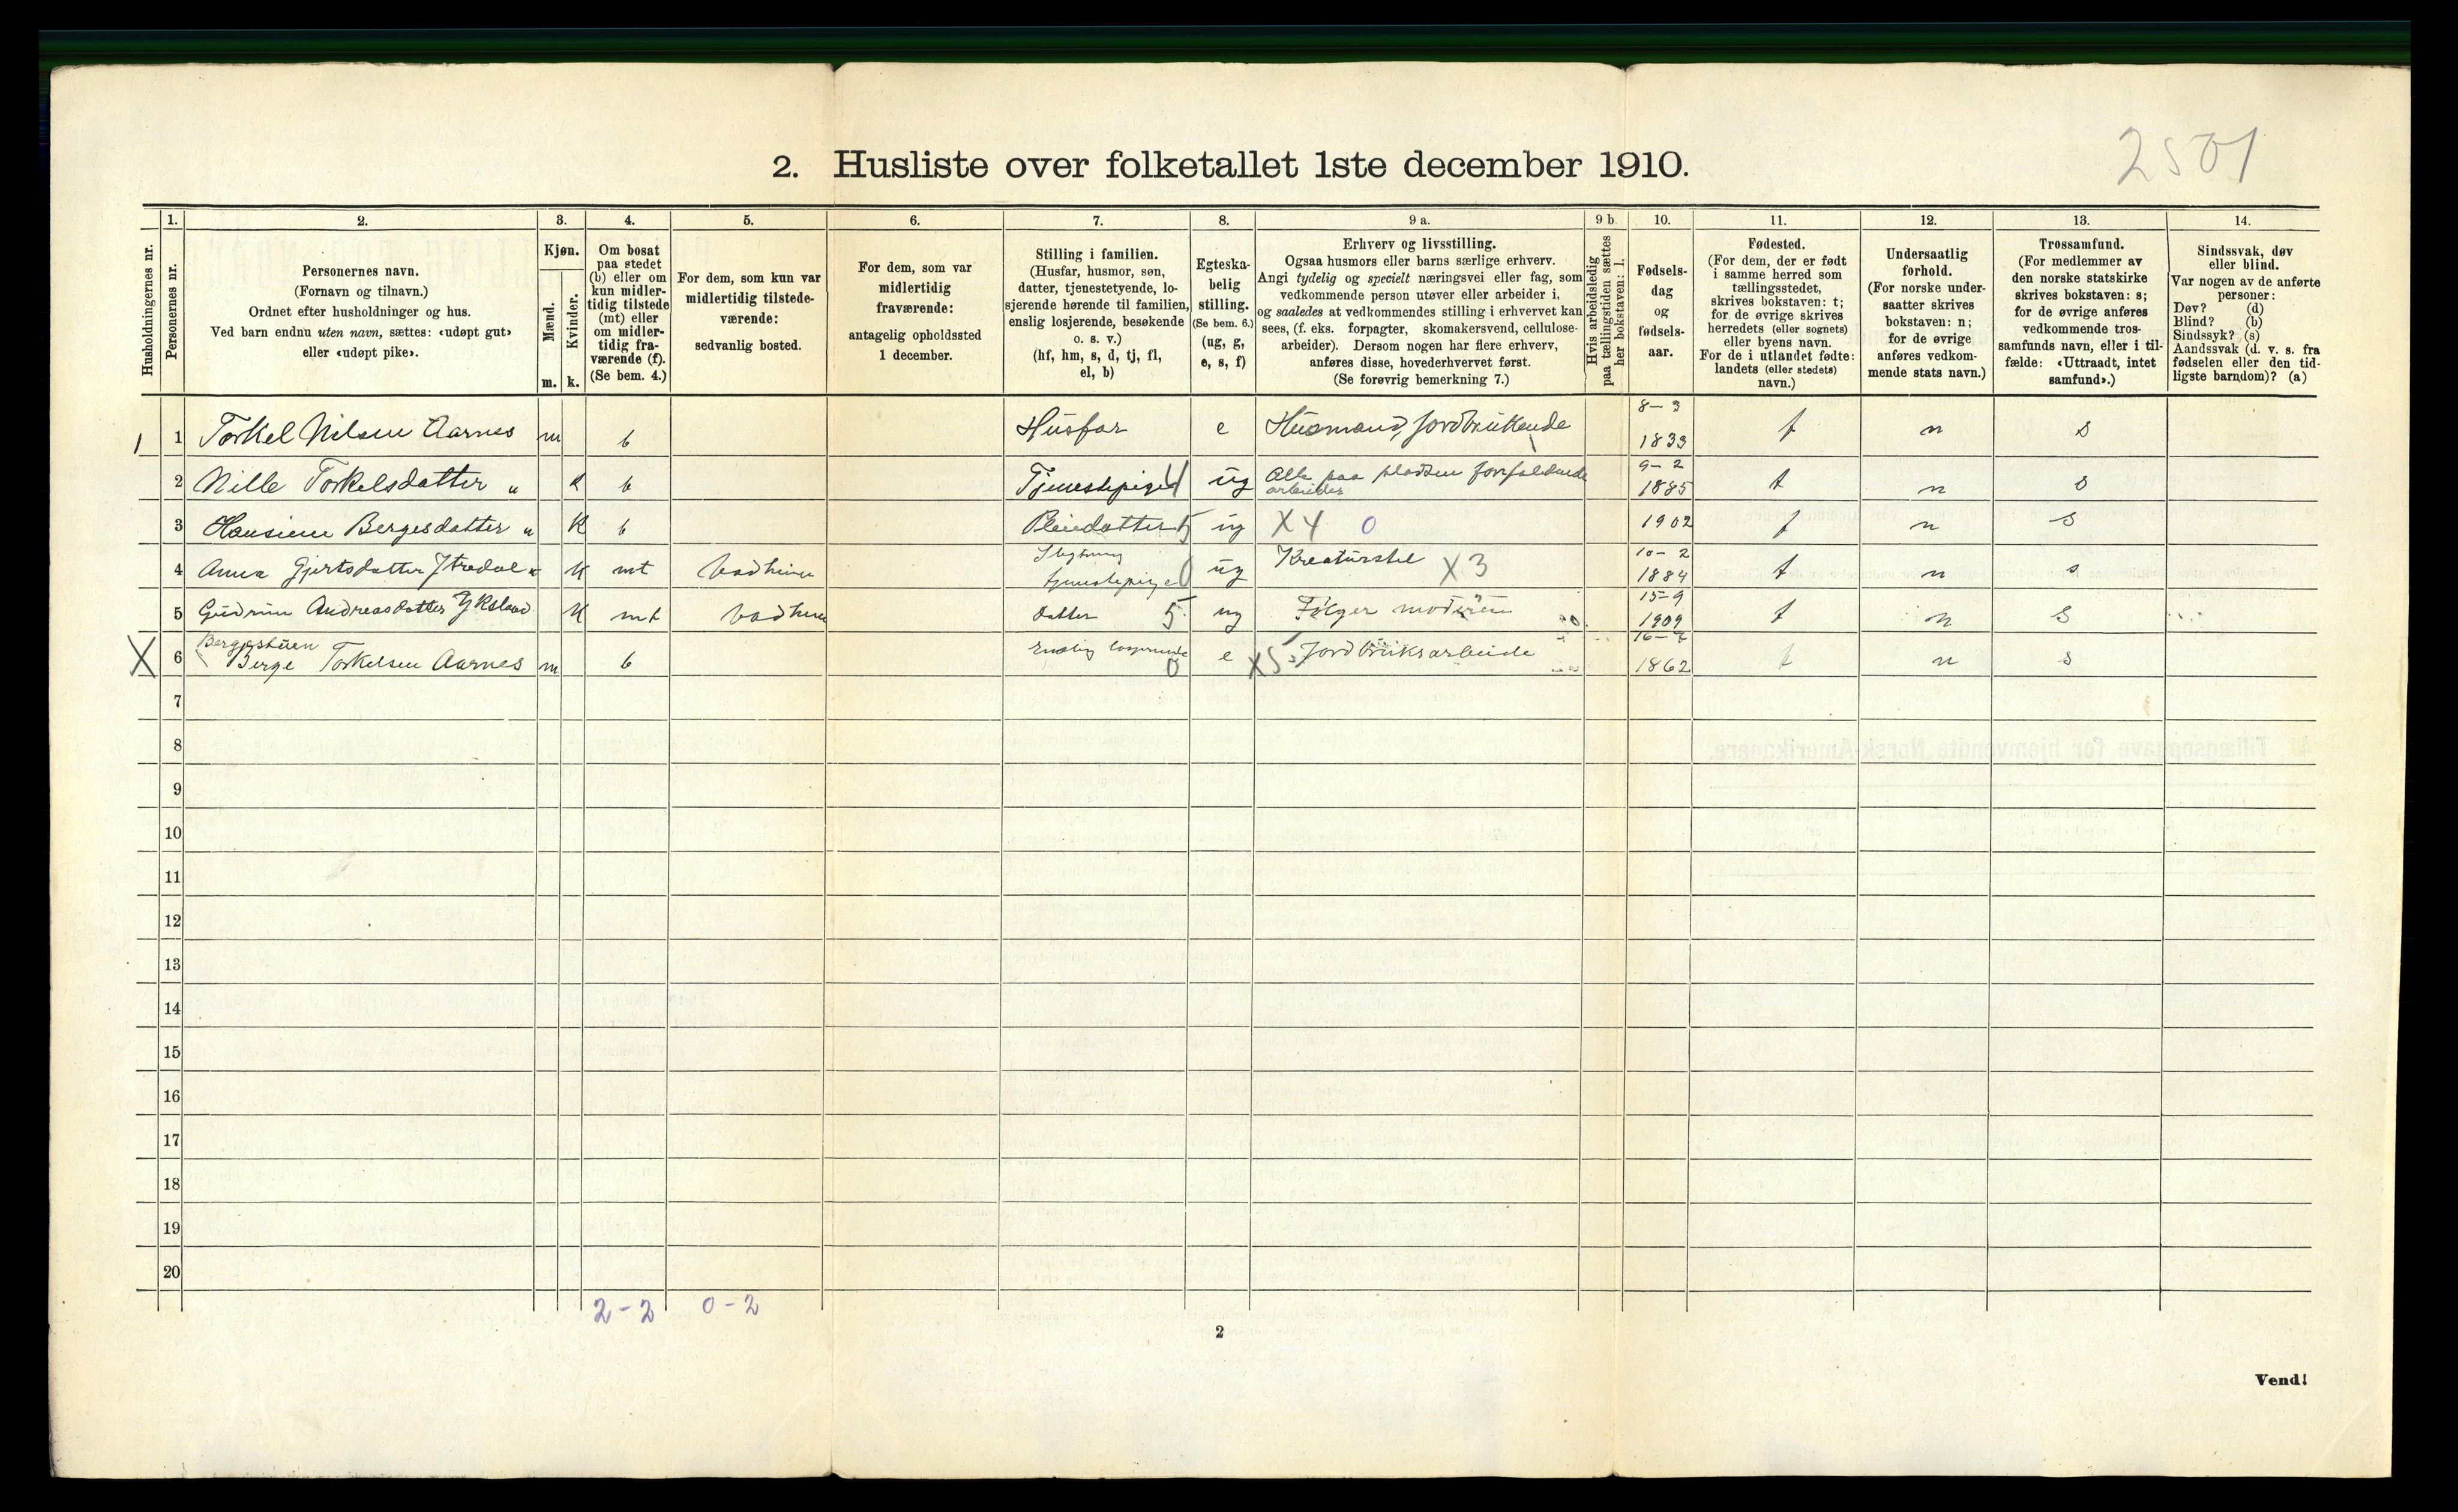 2501
2. Husliste over folketallet 1ste december 1910.
Husholdningernes nr.
1. Personernes nr.
2. Personernes navn.
(Fornavn og tilnavn.)
Ordnet efter husholdninger og hus.
Ved barn endnu uten navn, sættes: «udøpt gut»
eller «udøpt pike».
3. Kjøn.
Mænd. m.
Kvinder. k.
4. Om bosat
paa stedet
(b) eller om
kun midler-
tidig tilstede
(mt) eller
om midler-
tidig fra-
værende (f).
(Se bem. 4.)
5. For dem, som kun var
midlertidig tilstede-
værende:
sedvanlig bosted.
6. For dem, som var
midlertidig
fraværende:
antagelig opholdssted
1 december.
7. Stilling i familien.
(Husfar, husmor, søn,
datter, tjenestetyende, lo-
sjerende hørende til familien,
enslig losjerende, besøkende
o. s. v.)
(hf, hm, s, d, tj, fl,
el, b)
8. Egteska-
belig
stilling.
(Se bem. 6.)
(ug, g,
e, s, f)
9 a. Erhverv og livsstilling.
Ogsaa husmors eller barns særlige erhverv.
Angi tydelig og specielt næringsvei eller fag, som
vedkommende person utøver eller arbeider i,
og saaledes at vedkommendes stilling i erhvervet kan
sees, (f. eks. forpagter, skomakersvend, cellulose-
arbeider). Dersom nogen har flere erhverv,
anføres disse, hovederhvervet først.
(Se forøvrig bemerkning 7.)
9 b. Hvis arbeidsledig
paa tællingstiden sættes
her bokstaven: l.
10. Fødsels-
dag
og
fødsels-
aar.
11. Fødested.
(For dem, der er født
i samme herred som
tællingsstedet,
skrives bokstaven: t;
for de øvrige skrives
herredets (eller sognets)
eller byens navn.
For de i utlandet fødte:
landets (eller stedets)
navn.)
12. Undersaatlig
forhold.
(For norske under-
saatter skrives
bokstaven: n;
for de øvrige
anføres vedkom-
mende stats navn.)
13. Trossamfund.
(For medlemmer av
den norske statskirke
skrives bokstaven: s;
for de øvrige anføres
vedkommende tros-
samfunds navn, eller i til-
fælde: «Uttraadt, intet
samfund».)
14. Sindssvak, døv
eller blind.
Var nogen av de anførte
personer:
Døv? (d)
Blind? (b)
Sindssyk? (s)
Aandssvak (d. v. s. fra
fødselen eller den tid-
ligste barndom)? (a)
1 1 Torkel Nilsen Aarnes m b Husfar e Husmand, Jordbrukende 8-3 1833 t n s
2 Nille Torkelsdatter " k b Tjenestepige ug Alle paa pladsen forefaldende arbeider 9-2 1885 t n s
3 Hansine Bergesdatter " K b Pleiedatter 5 ug X4 0 1902 t n s
4 Anna Gjertsdatter K mt tjenestepige ug Kreaturstel X3 10-2 1884 t n s
5 Gudrun Andreasdatter K mt datter 5 ug Følger moderen 15-9 1909 t n s
X 6 Bergestuen
Berge Torkelsen Aarnes m b Enslig losjerende 0 e X5 Jordbruksarbeide 16-7 1862 t n s
7
8
9
10
11
12
13
14
15
16
17
18
19
20
2-2 0-2
2
Vend!